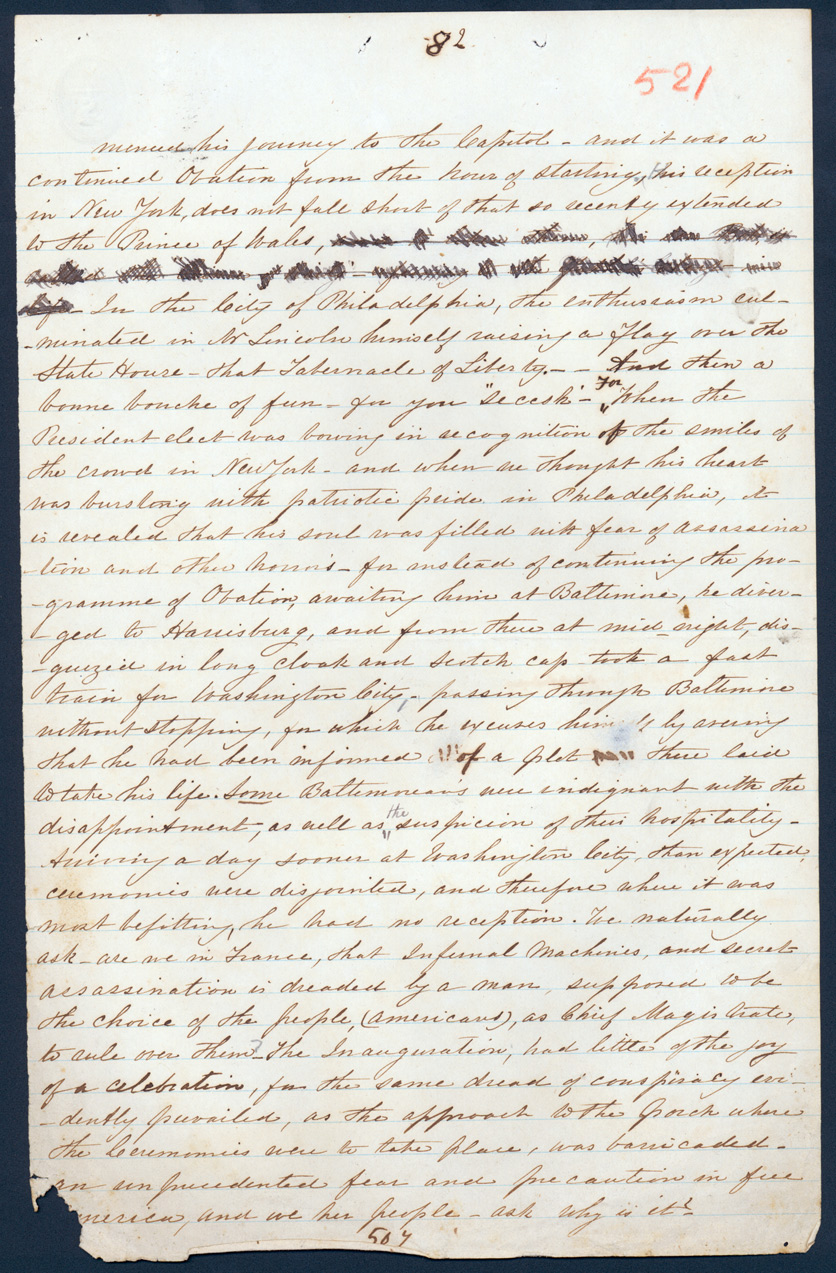 82
521
menced his journey to the Capitol - and it was a
continued Ovation from the hour of starting, his reception
in New York, does not fall short of that so recently extended
to the Prince of Wales,
life - In the City of Philadelphia, the enthusiasm cul-
-minated in Mr Lincoln himself raising a Flag over the
State House - that Tabernacle of Liberty. - - And then a
bonne bouche of fun - for you "secesh" - For
" When the
President elect was bowing in recognition of the smiles of
the crowd in New York - and when we thought his heart
was bursting with patriotic pride in Philadelphia, it
is revealed that his soul was filled with fear of assassina
-tion and other horrors - for instead of continuing the pro-
-gramme of Ovation, awaiting him at Baltimore, he diver-
-ged to Harrisburg, and from there at mid-night, dis-
-guized in long cloak and scotch cap - took a fast
train for Washington City, - passing through Baltimore
without stopping, for which he excuses himself by avering
that he had been informed of a plot there laid
to take his life. Some Baltimoreans were indignant with the
disappointment, as well as the suspicion of their hospitality -
Arriving a day sooner at Washington City, than expected,
ceremonies were disjointed, and therefore where it was
most befitting, he had no reception. We naturally
ask - are we in France, that Infernal Machines, and secret
assassination is dreaded by a man, supposed to be
the choice of the people, (americans), as Chief Magistrate,
to rule over them? - The Inauguration, had little of the joy
of a celebration, for the same dread of conspiracy evi-
-dently prevailed, as the approach to the Porch where
the Ceremonies were to take place, was barricaded -
an unprecedented fear and precaution in free
merica, and we her people - ask why is it?
507